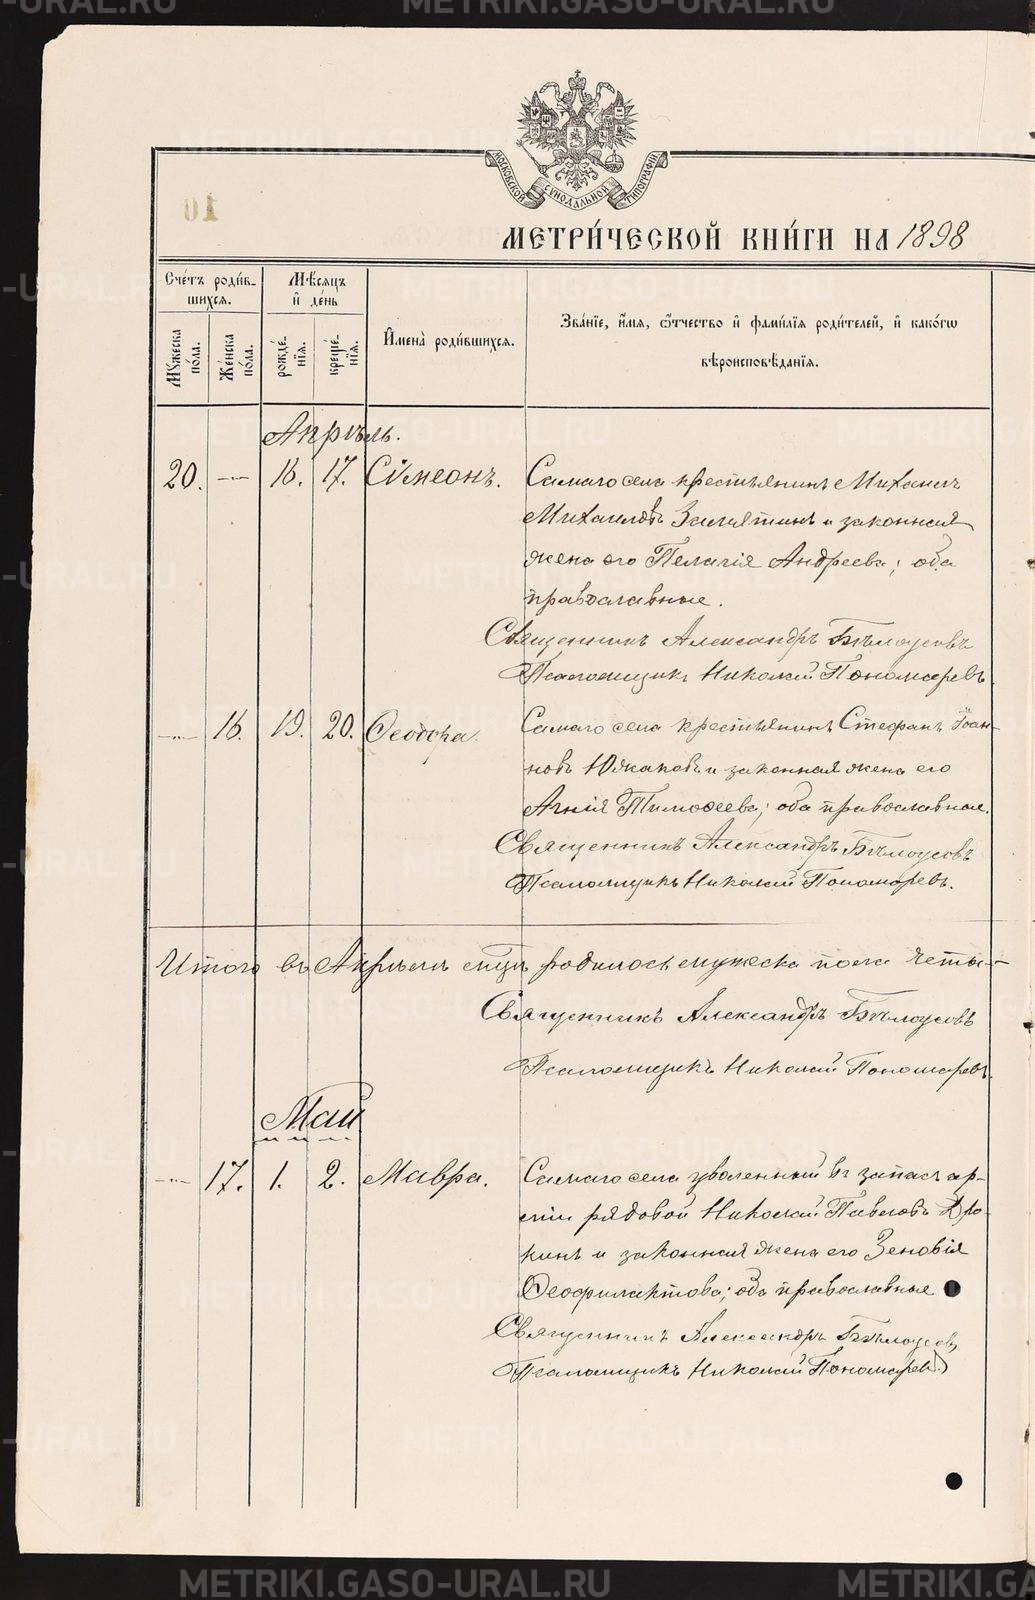 METRIKI.GASO-URAL.RU
МОСКОВСКОЙ СѴНОДАЛЬНОЙ ТИПОГРАФІИ
10
МЕТРИ́ЧЕСКОЙ КНИ́ГИ НА 1898
Сче́тъ роди́в-
шихся.
Мѣ́сяцъ
и҆ де́нь
Мꙋ́жеска
по́ла.
Же́нска
по́ла.
рожде́-
нїѧ.
креще́-
нїѧ.
И҆мена̀ роди́вшихсѧ.
Зва́нїе, и҆́мѧ, ѻ҆́тчество и҆ фами́лїѧ роди́телей, и҆ како́гѡ
вѣроисповѣ́данїѧ.
Апрѣль.
20. — 16. 17. Сѵмеонъ. Самаго села крестьянинъ Михаилъ
Михаиловъ Замятинъ и законная
жена его Пелагія Андреева; оба
православные.
Священникъ Александръ Бѣлоусовъ
Псаломщикъ Николай Пономаревъ.
— 16. 19. 20. Ѳеодора. Самаго села крестьянинъ Стефанъ Іоан-
новъ Южаковъ и законная жена его
Агнія Тимоѳеева; оба православные.
Священникъ Александръ Бѣлоусовъ
Псаломщикъ Николай Пономаревъ.
Итого въ Апрѣлѣ мцѣ родилось мужеска пола четы-
Священникъ Александръ Бѣлоусовъ
Псаломщикъ Николай Пономаревъ.
Май
— 17. 1. 2. Мавра. Самаго села уволенный въ запасъ ар-
міи рядовой Николай Павловъ Дро-
кинъ и законная жена его Зеновія
Ѳеофилактова; оба православные
Священникъ Александръ Бѣлоусовъ
Псаломщикъ Николай Пономаревъ